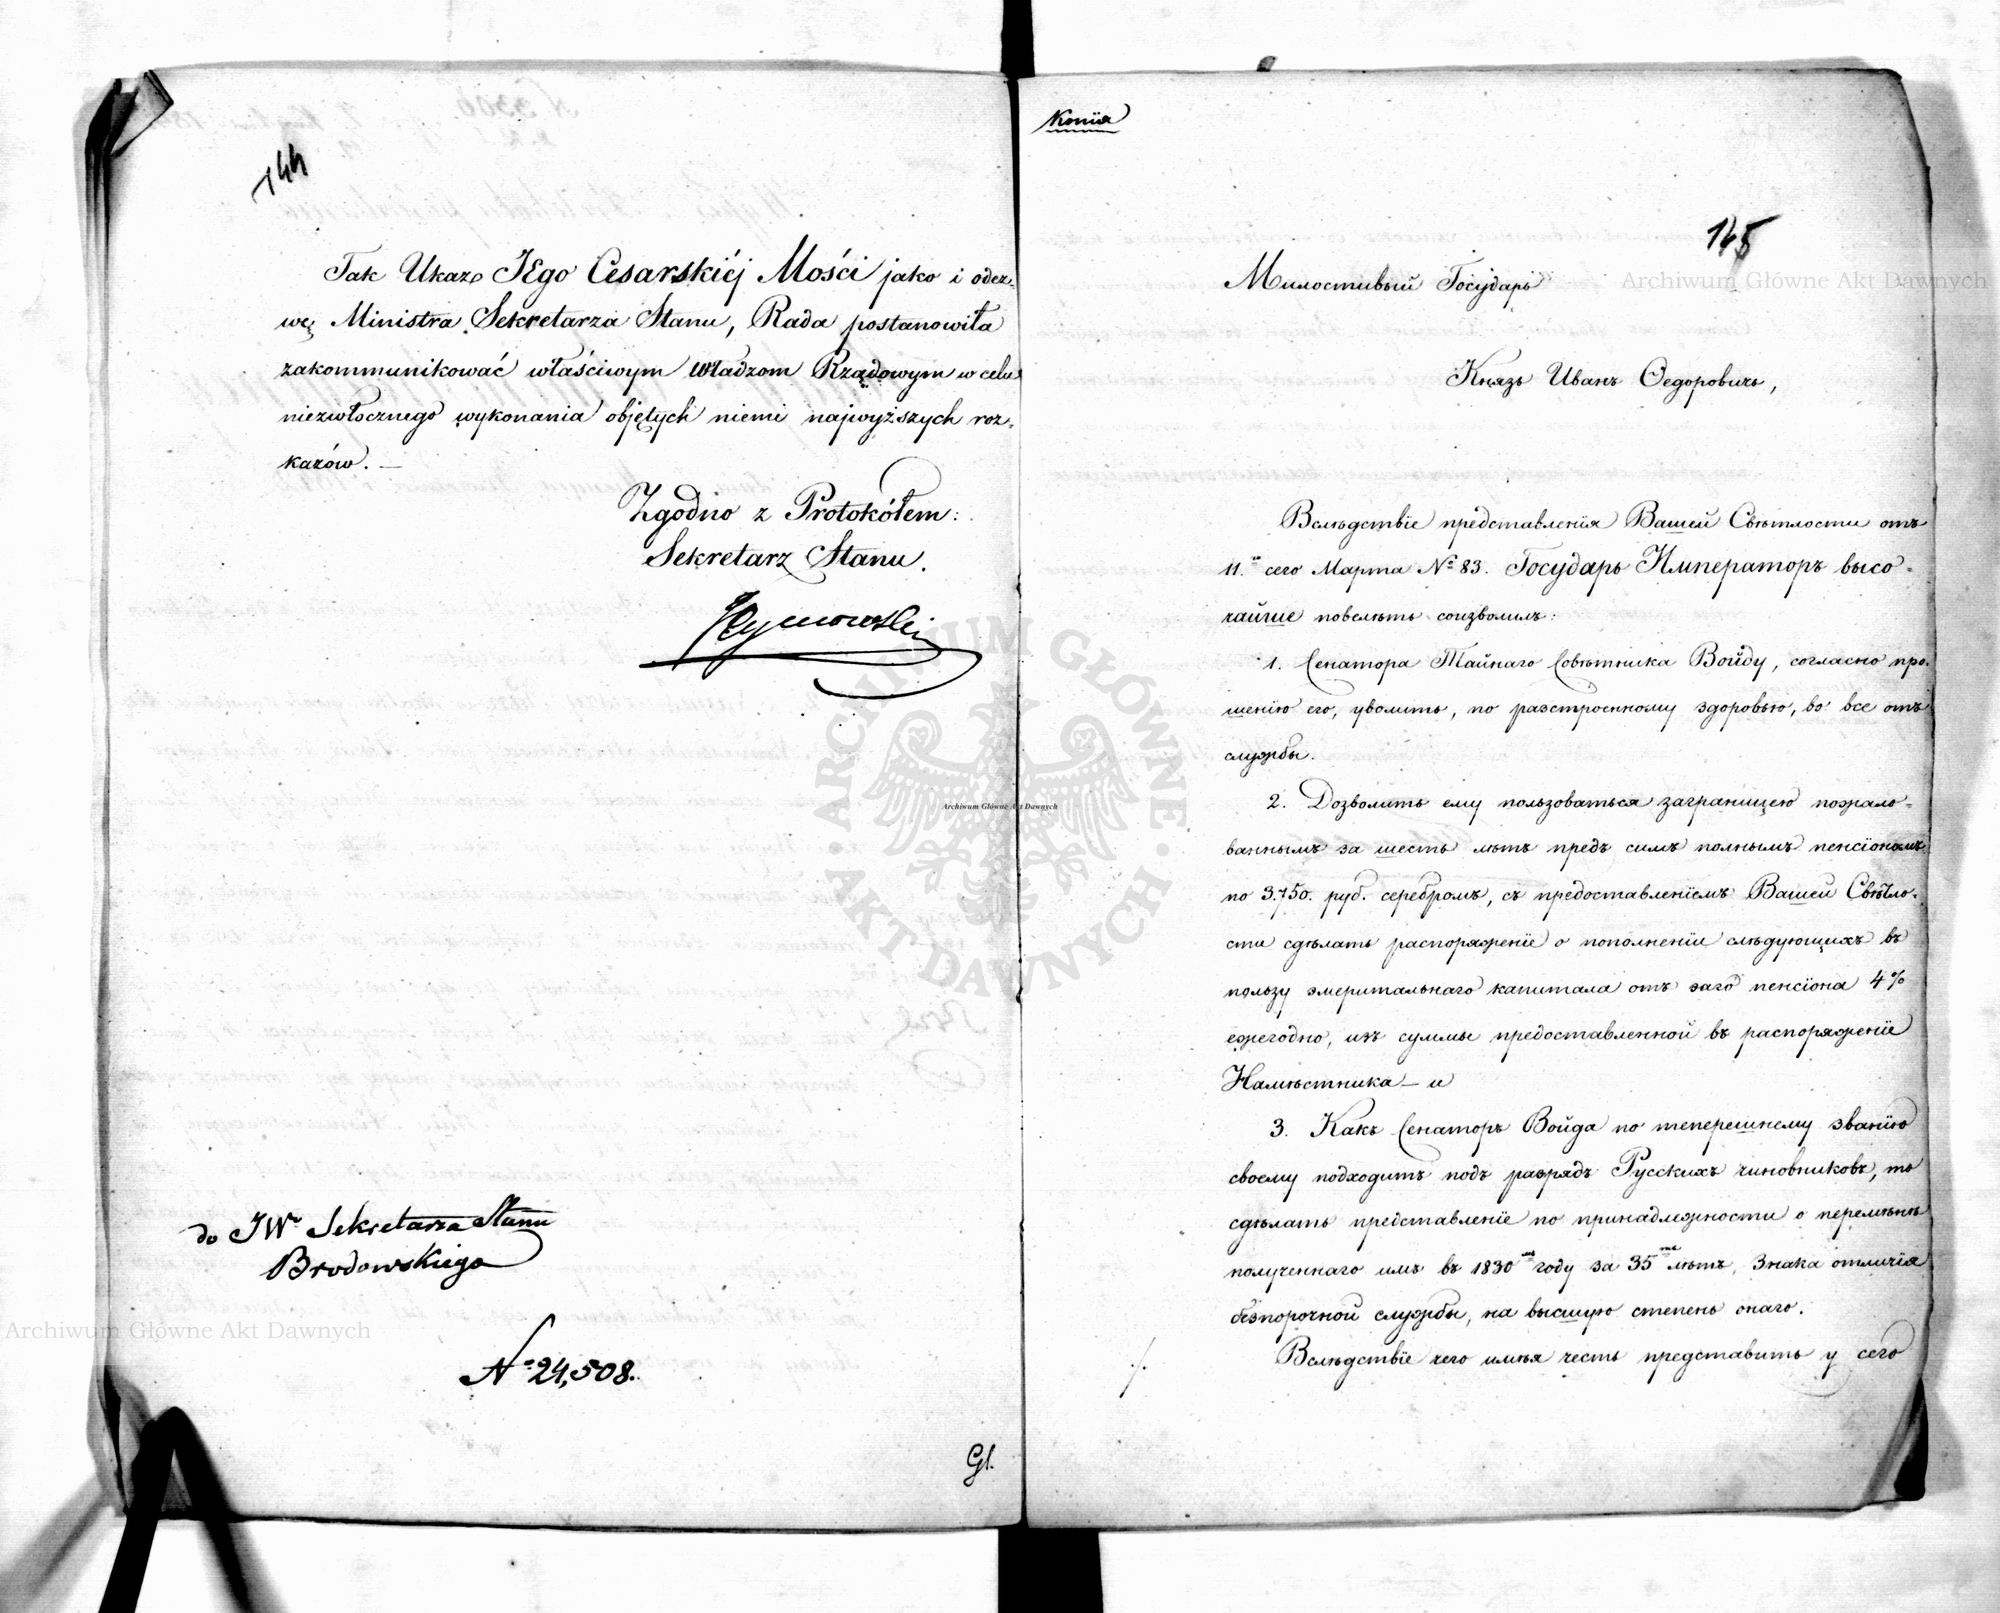 144
Tak Ukaz JEgo Cesarskiéj Mości jako i odez-
wę Ministra Sekretarza Stanu, Rada postanowiła
zakommunikować właściwym Władzom Rządowym w celu
niezwłocznego wykonania objętych niemi najwyższych roz-
kazów. —
Zgodno z Protokółem:
Sekretarz Stanu.
do JW Sekretarza Stanu
Brodowskiego
No 24,508.
Gl.
Копія
145
Милостивый Государь
Князь Иванъ Ѳедоровичъ,
Вслѣдствіе представленія Вашей Свѣтлости отъ
11.го сего Марта No 83. Государь Императоръ высо-
чайше повелѣть соизволилъ:
1. Сенатора Тайнаго Совѣтника Войду, согласно про-
шенію его, уволить, по разстроенному здоровью, во все отъ
службы.
2. Дозволить ему пользоваться заграницею пожало-
ваннымъ за шесть лѣтъ предъ симъ полнымъ пенсіономъ
по 3.750. руб. серебромъ, съ предоставленіемъ Вашей Свѣтло-
сти сдѣлать распоряженіе о пополненіи слѣдующихъ въ
пользу эмеритальнаго капитала отъ сего пенсіона 4%
ежегодно, изъ суммы предоставленной въ распоряженіе
Намѣстника — и
3. Какъ Сенаторъ Войда по теперешнему званію
своему подходитъ подъ разрядъ Русскихъ чиновниковъ, то
сдѣлать представленіе по принадлежности о перемѣнѣ
полученнаго имъ въ 1830мъ году за 35ть лѣтъ, Знака отличія
безпорочной службы, на высшую степень онаго.
Вслѣдствіе чего имѣя честь представить у сего
./.
Archiwum Główne Akt Dawnych
Archiwum Główne Akt Dawnych
Archiwum Główne Akt Dawnych
ARCHIWUM GŁÓWNE
AKT DAWNYCH